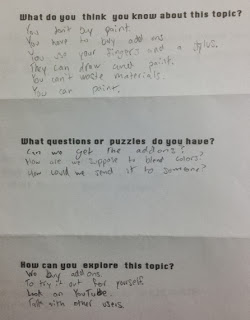 What do you think you know about this topic?
You don't buy paint.
You have to buy add ons.
You use your fingers and a stylus.
They can draw and paint.
You can't waste materials.
You can paint.
What questions or puzzles do you have?
Can we get the add ons?
How are we suppose to blend colors?
How could we send it to someone?
How can you explore this topic?
We buy add ons.
To try it out for yourself
Look on YouTube.
Talk with other users.